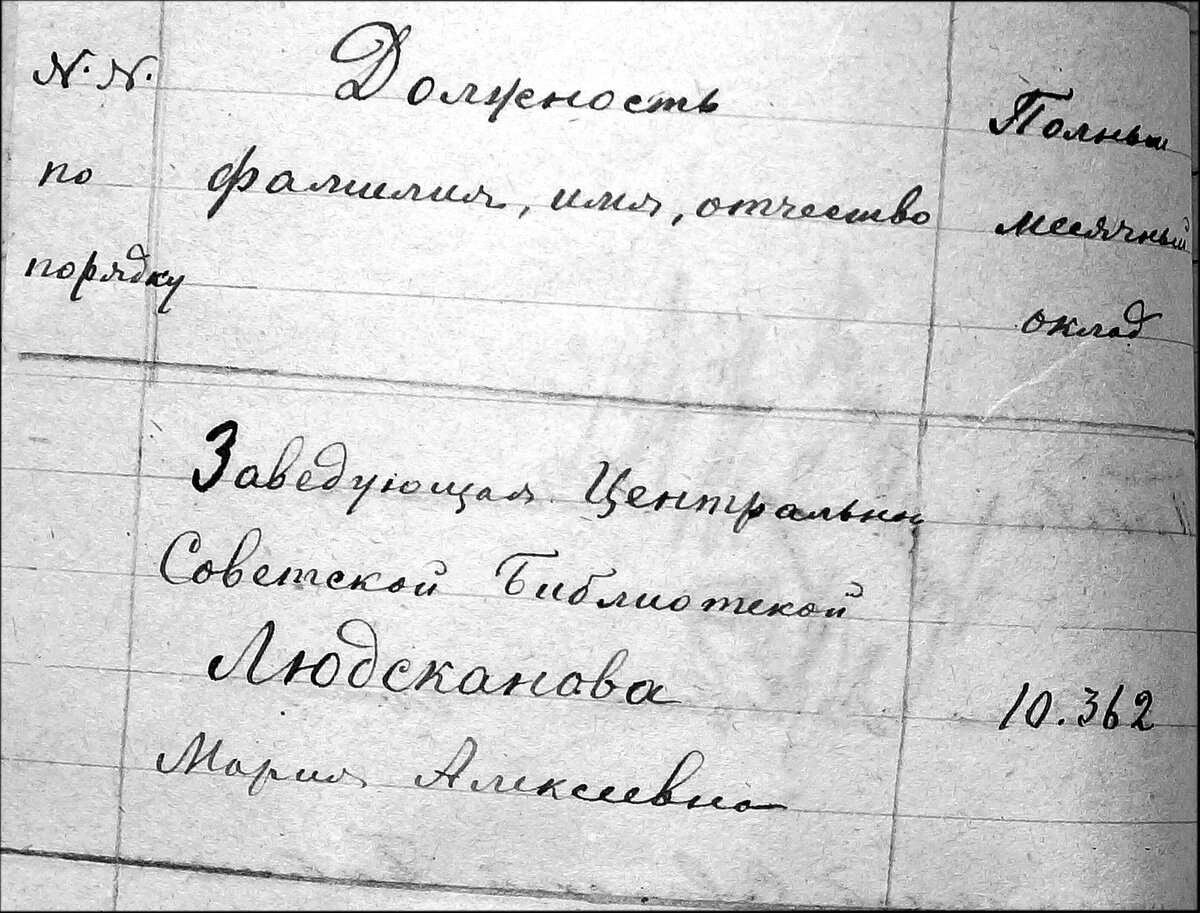 N.N. Должность Полный
по фамилия, имя, отчество месячный
порядку оклад
Заведующая Центральной
Советской Библиотекой
Людсканова 10.362
Мария Алексеевна